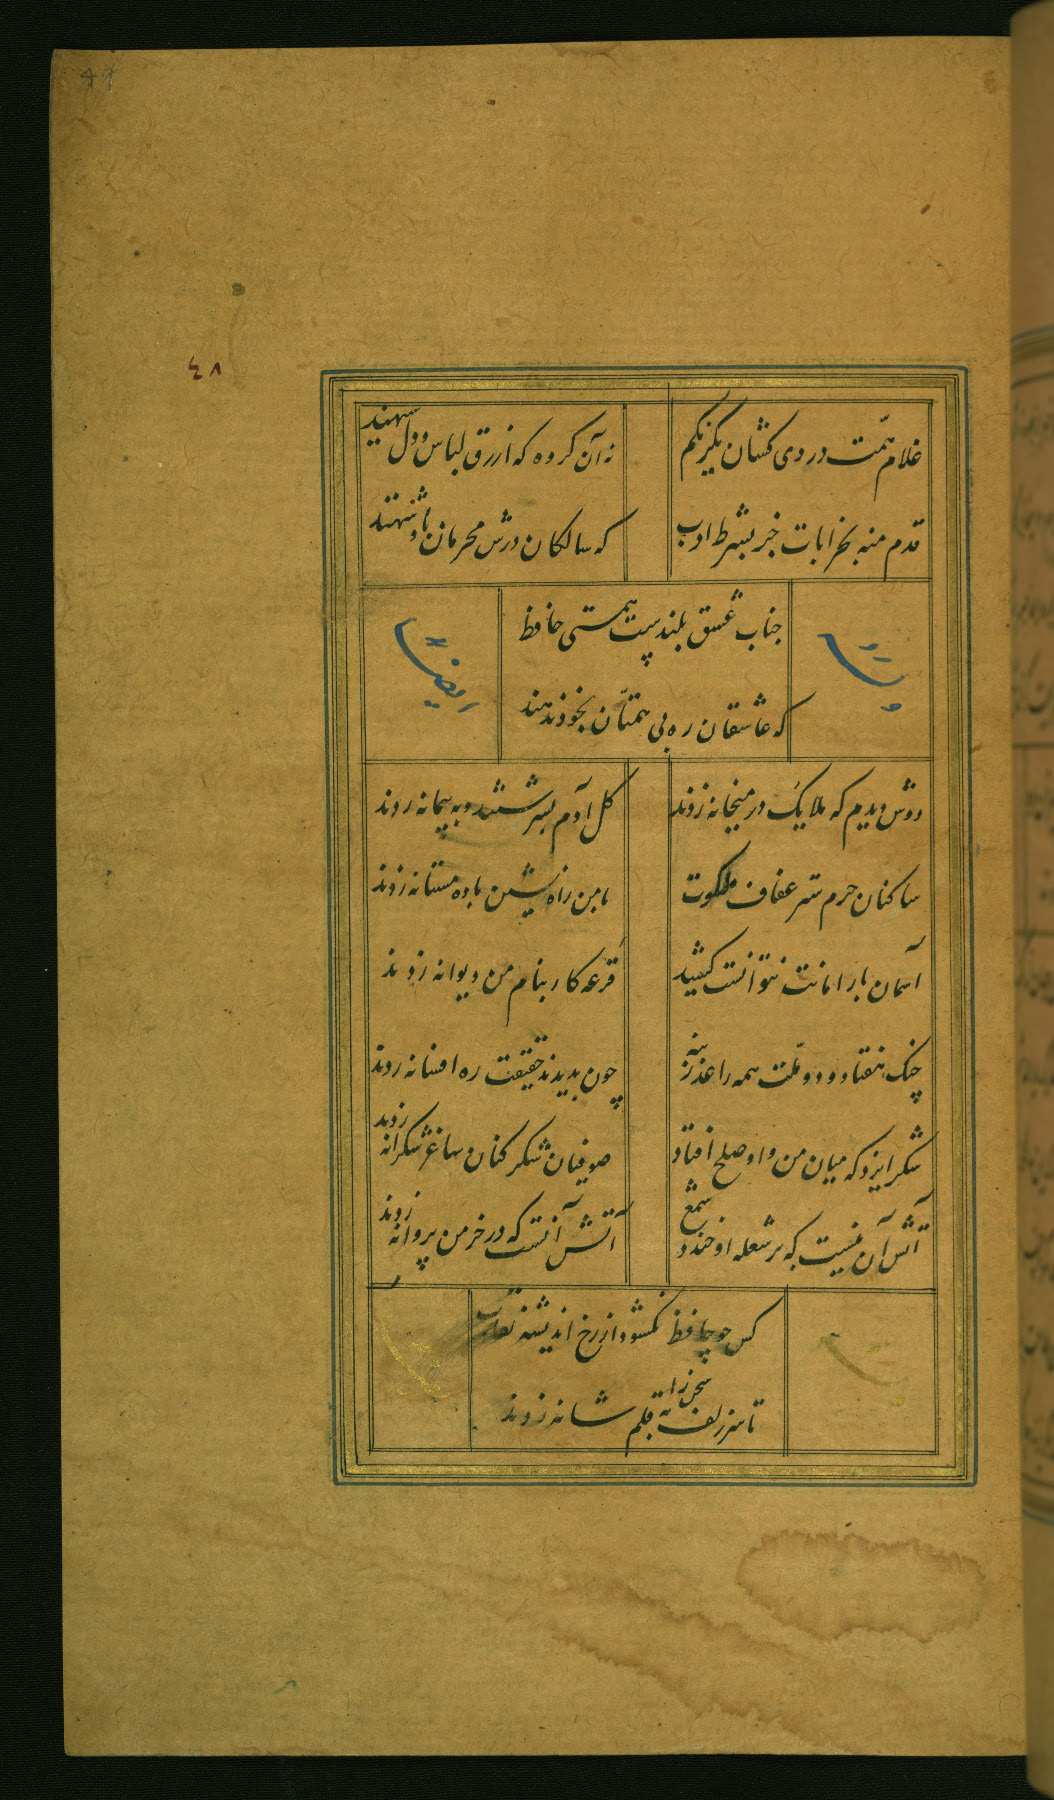 49
٤٨
غلام همّت دردی کشان یکرنگم
نه آن گروه که ازرق لباس و دل سیهند
قدم منه بخرابات جز بشرط ادب
که سالکان درش محرمان پادشهند
جناب عشق بلندست همتی حافظ
که عاشقان ره بی همتان بخود ندهند
وله
ایضا
دوش دیدم که ملایک در میخانه زدند
گل آدم بسرشتند و به پیمانه زدند
ساکنان حرم ستر عفاف ملکوت
با من راه نشین باده مستانه زدند
آسمان بار امانت نتوانست کشید
قرعه کار بنام من دیوانه زدند
جنگ هفتاد و دو ملّت همه را عذر بنه
چون بدیدند حقیقت ره افسانه زدند
شکر ایزد که میان من و او صلح افتاد
صوفیان شکر کنان ساغر شکرانه زدند
آتش آن نیست که بر شعله او خندد شمع
آتش آنست که در خرمن پروانه زدند
کس چو حافظ نکشود از رخ اندیشه نقاب
تا سر زلف سخن را به قلم شانه زدند